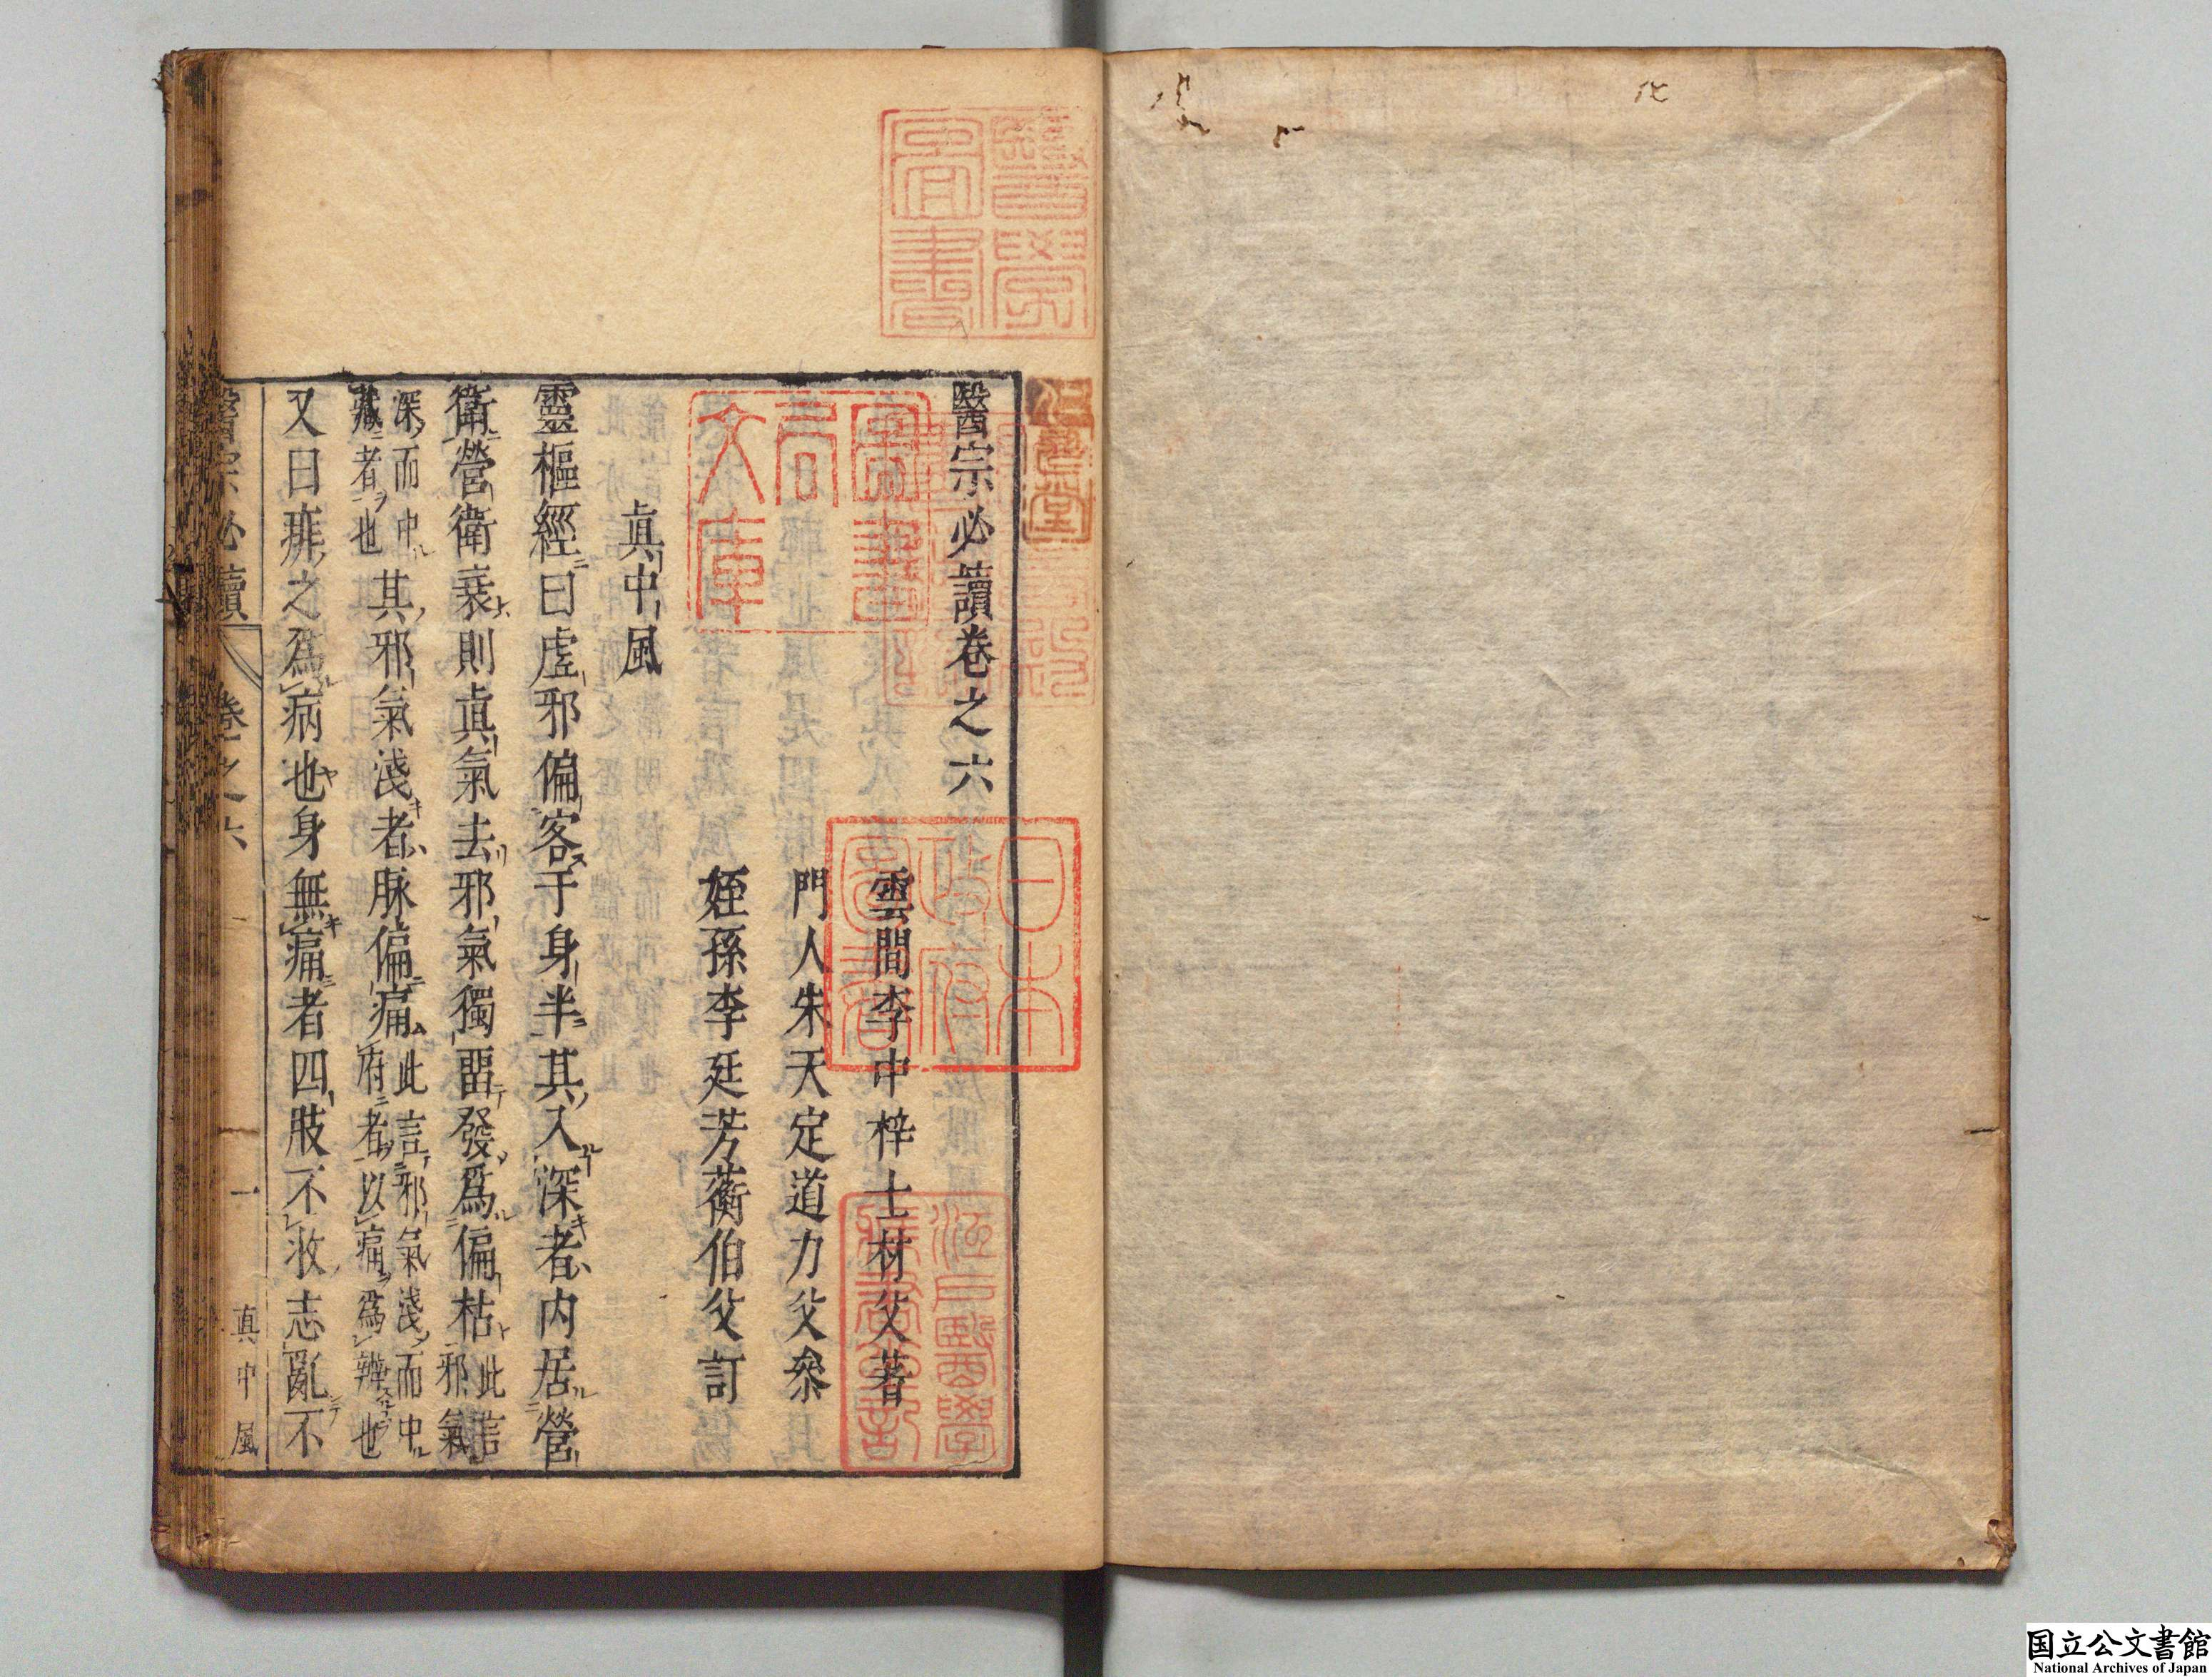 醫宗必讀卷之六
雲間李中梓士材父著
門人朱天定道力父叅
姪孫李廷芳蘅伯父訂
眞中風
靈樞經曰虛邪偏客于身半其入深者内居營
衛營衛衰則眞氣去邪氣獨畱發爲偏枯此言邪氣
深而中藏者也其邪氣淺者脉偏痛此言邪氣淺而中府者以痛爲辨也
又曰痱之爲病也身無痛者四肢不收志亂不
醫宗必讀 卷之六 一 眞中風
醫學圖書
仁壽堂
圖書局文庫
日本政府圖書
江戸醫學藏書之部
国立公文書館
National Archives of Japan